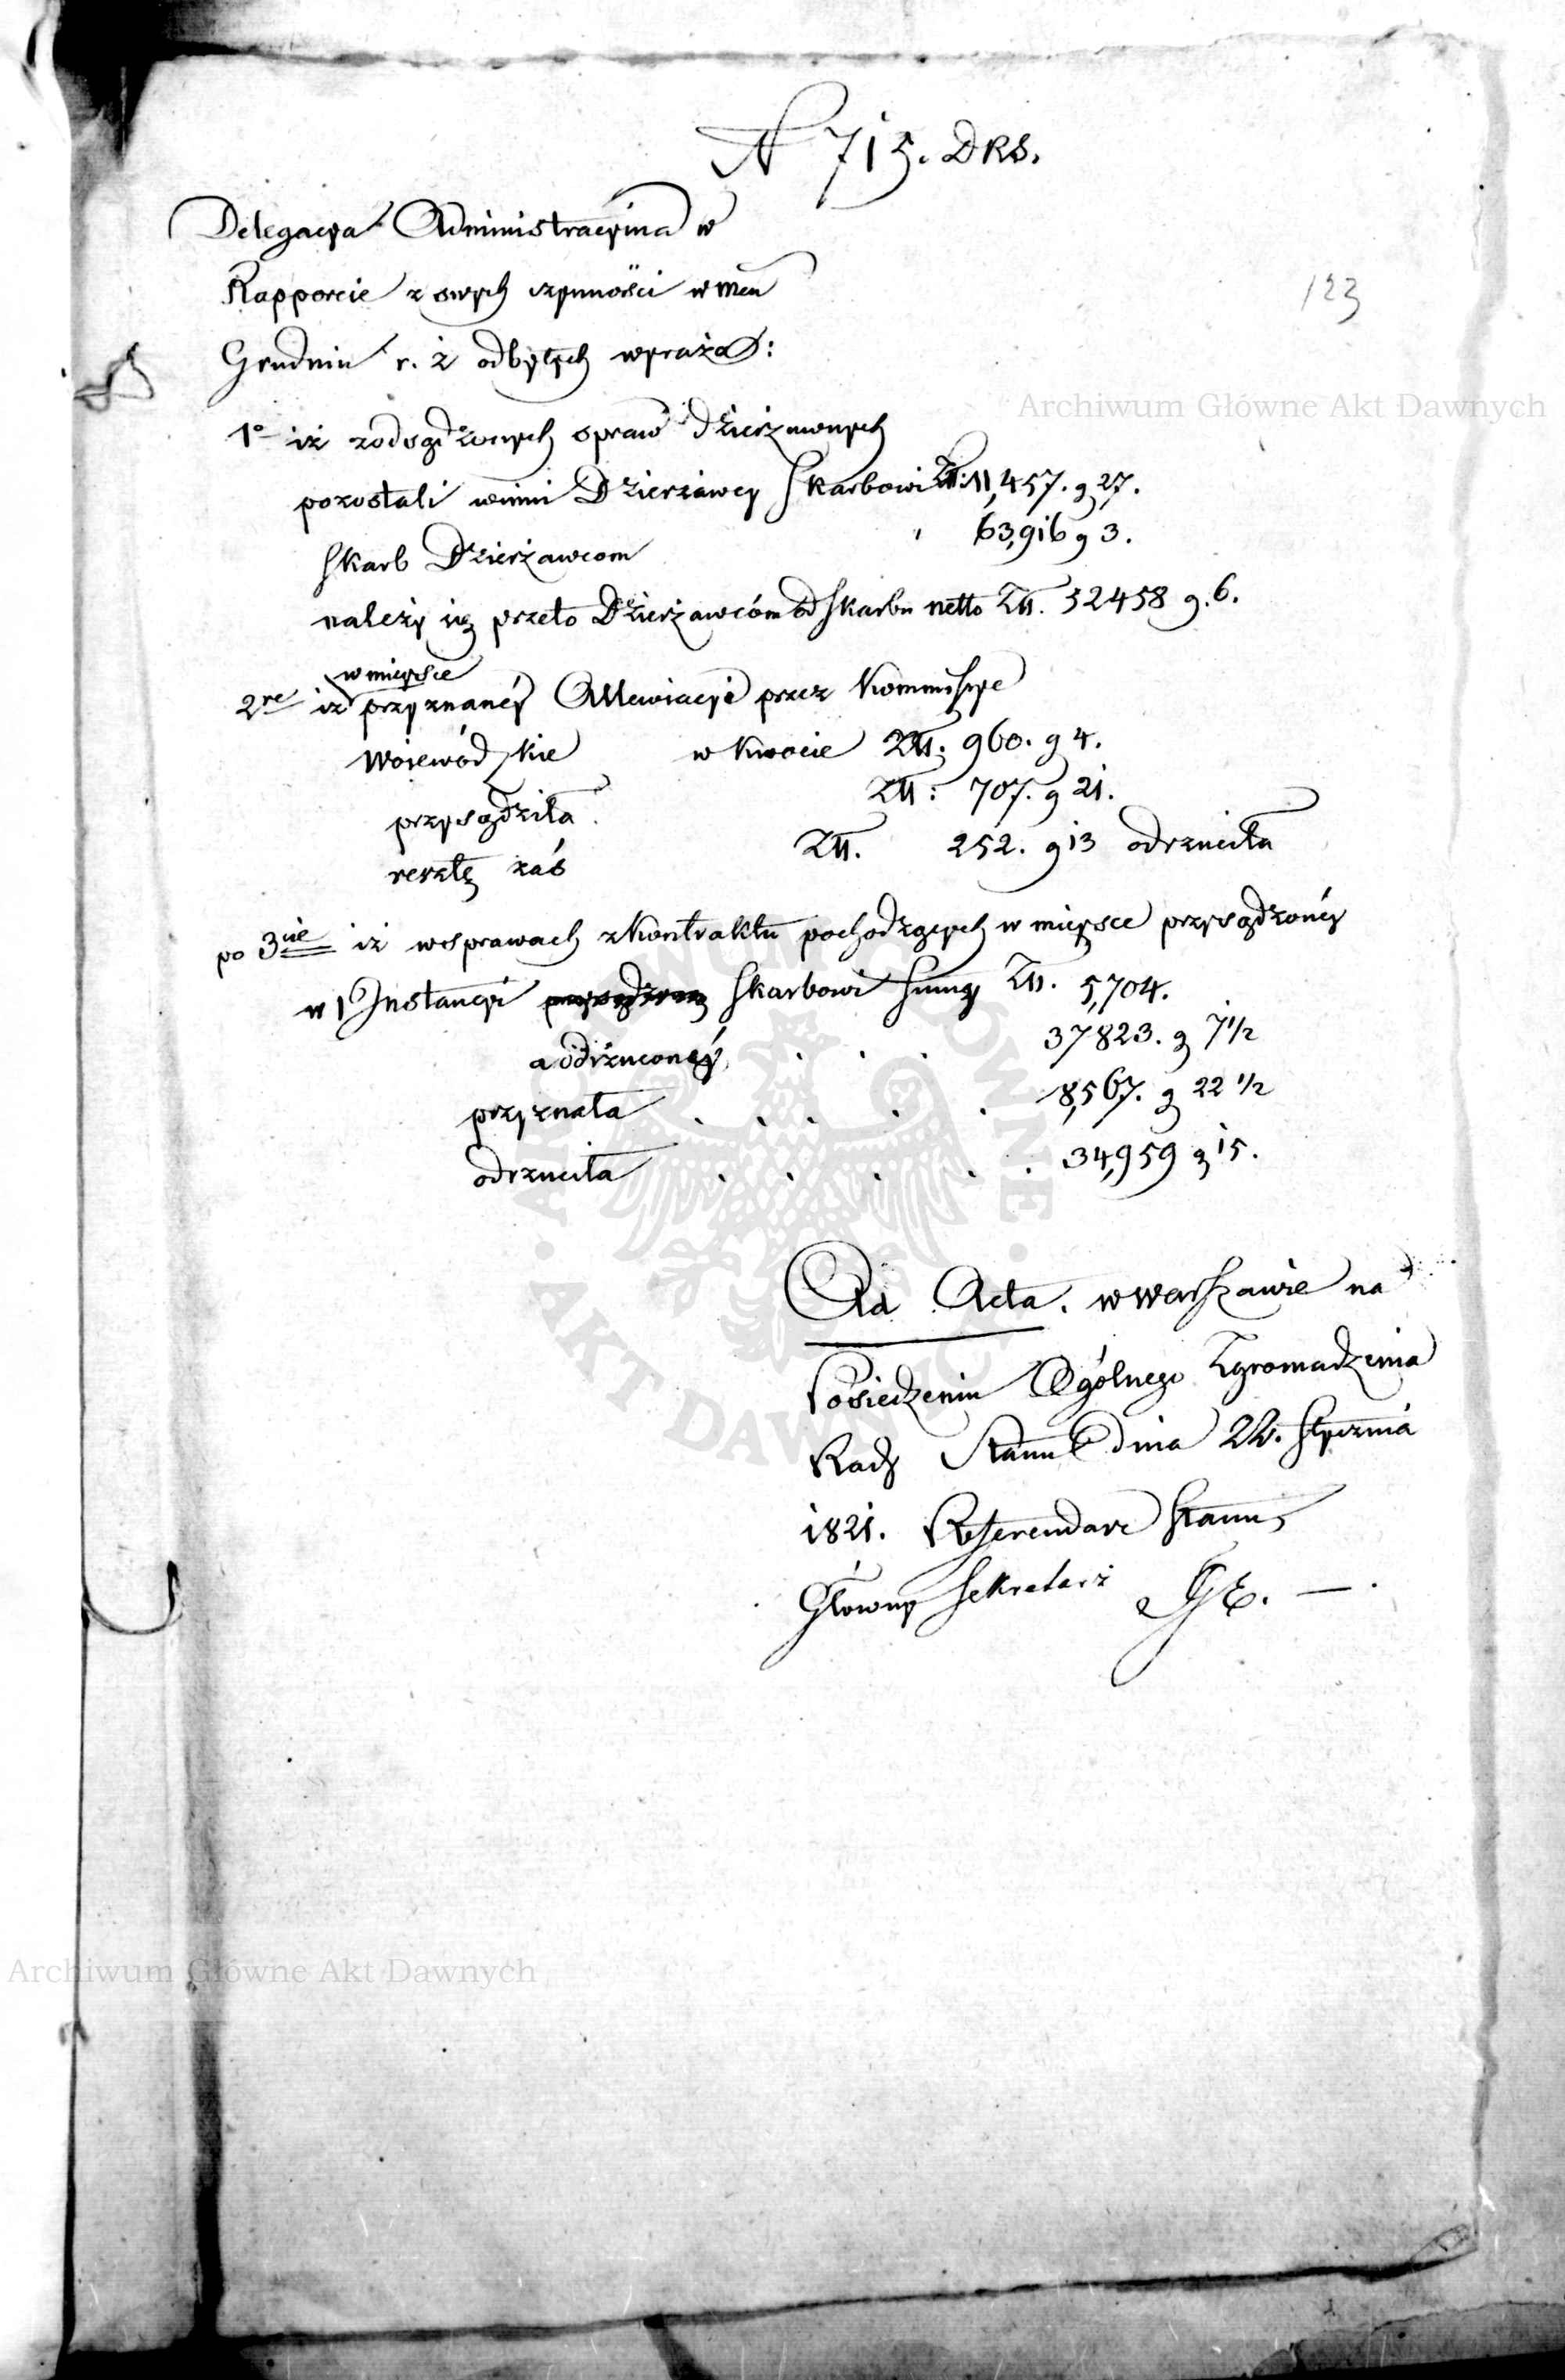 N 715. DRS.
Delegacya Administracyina w
Rapporcie z swych czynności w mcu
Grudniu r. z odbytych wyraża:
123
Archiwum Główne Akt Dawnych
1° iż z odsądzonych spraw dzierzawnych
pozostali winni Dzierzawcy Skarbowi Zł: 11,457. g 27.
Skarb Dzierżawcom " 63,916 g 3.
należy się przeto Dzierżawcóm od Skarbu netto Zł. 52458 g. 6.
w mieysce
2re iż przyznanéy Allewiacyi przez Kommissye
Woiewódzkie w kwocie Zł. 960. g 4.
przysądziła Zł: 707. g 21.
resztę zaś Zł. 252. g 13 odrzuciła
po 3cie iż w sprawach z kontraktu pochodzących w mieysce przysądzonéy
w 1 Instancyi Skarbowi Summy Zł. 5,704.
a odrzuconéy . . . 37823. g 7 1/2
przyznała . . . . . 8,567. g 22 1/2
odrzuciła . . . . . 34,959 g 15.
Ad Acta. w Warszawie na
Posiedzeniu Ogólnego Zgromadzenia
Rady Stanu dnia 22. Stycznia
1821. Referendarz Stanu,
Główny Sekretarz
Archiwum Główne Akt Dawnych